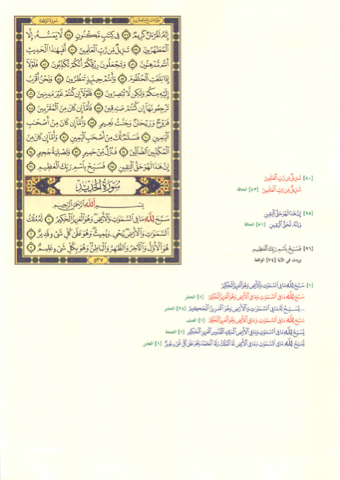 سورة الواقعة
إِنَّهُ لَقُرْءَانٌ كَرِيمٌ ٧٧ فِى كِتَـٰبٍ مَّكْنُونٍ ٧٨ لَّا يَمَسُّهُۥٓ إِلَّا
ٱلْمُطَهَّرُونَ ٧٩ تَنزِيلٌ مِّن رَّبِّ ٱلْعَـٰلَمِينَ ٨٠ أَفَبِهَـٰذَا ٱلْحَدِيثِ
أَنتُم مُّدْهِنُونَ ٨١ وَتَجْعَلُونَ رِزْقَكُمْ أَنَّكُمْ تُكَذِّبُونَ ٨٢ فَلَوْلَآ
إِذَا بَلَغَتِ ٱلْحُلْقُومَ ٨٣ وَأَنتُمْ حِينَئِذٍ تَنظُرُونَ ٨٤ وَنَحْنُ أَقْرَبُ
إِلَيْهِ مِنكُمْ وَلَـٰكِن لَّا تُبْصِرُونَ ٨٥ فَلَوْلَآ إِن كُنتُمْ غَيْرَ مَدِينِينَ ٨٦
تَرْجِعُونَهَآ إِن كُنتُمْ صَـٰدِقِينَ ٨٧ فَأَمَّآ إِن كَانَ مِنَ ٱلْمُقَرَّبِينَ ٨٨
فَرَوْحٌ وَرَيْحَانٌ وَجَنَّتُ نَعِيمٍ ٨٩ وَأَمَّآ إِن كَانَ مِنْ أَصْحَـٰبِ
ٱلْيَمِينِ ٩٠ فَسَلَـٰمٌ لَّكَ مِنْ أَصْحَـٰبِ ٱلْيَمِينِ ٩١ وَأَمَّآ إِن كَانَ مِنَ
ٱلْمُكَذِّبِينَ ٱلضَّآلِّينَ ٩٢ فَنُزُلٌ مِّنْ حَمِيمٍ ٩٣ وَتَصْلِيَةُ جَحِيمٍ ٩٤
إِنَّ هَـٰذَا لَهُوَ حَقُّ ٱلْيَقِينِ ٩٥ فَسَبِّحْ بِٱسْمِ رَبِّكَ ٱلْعَظِيمِ ٩٦
سُورَةُ الحَدِيد
بِسْمِ ٱللَّهِ ٱلرَّحْمَـٰنِ ٱلرَّحِيمِ
سَبَّحَ لِلَّهِ مَا فِى ٱلسَّمَـٰوَٰتِ وَٱلْأَرْضِ وَهُوَ ٱلْعَزِيزُ ٱلْحَكِيمُ ١ لَهُۥ مُلْكُ
ٱلسَّمَـٰوَٰتِ وَٱلْأَرْضِ يُحْىِۦ وَيُمِيتُ وَهُوَ عَلَىٰ كُلِّ شَىْءٍ قَدِيرٌ ٢
هُوَ ٱلْأَوَّلُ وَٱلْـَٔاخِرُ وَٱلظَّـٰهِرُ وَٱلْبَاطِنُ وَهُوَ بِكُلِّ شَىْءٍ عَلِيمٌ ٣
٥٣٧
[٨٠] تَنزِيلٌ مِّن رَّبِّ ٱلْعَـٰلَمِينَ
تَنزِيلٌ مِّن رَّبِّ ٱلْعَـٰلَمِينَ [٤٣] الحاقة
[٩٥] إِنَّ هَـٰذَا لَهُوَ حَقُّ ٱلْيَقِينِ
وَإِنَّهُۥ لَحَقُّ ٱلْيَقِينِ [٥١] الحاقة
[٩٦] فَسَبِّحْ بِٱسْمِ رَبِّكَ ٱلْعَظِيمِ
وردت في الآية [٧٤] الواقعة
[١] سَبَّحَ لِلَّهِ مَا فِى ٱلسَّمَـٰوَٰتِ وَٱلْأَرْضِ وَهُوَ ٱلْعَزِيزُ ٱلْحَكِيمُ
سَبَّحَ لِلَّهِ مَا فِى ٱلسَّمَـٰوَٰتِ وَمَا فِى ٱلْأَرْضِ وَهُوَ ٱلْعَزِيزُ ٱلْحَكِيمُ [١] الحشر
...يُسَبِّحُ لَهُۥ مَا فِى ٱلسَّمَـٰوَٰتِ وَٱلْأَرْضِ وَهُوَ ٱلْعَزِيزُ ٱلْحَكِيمُ [٢٤] الحشر
سَبَّحَ لِلَّهِ مَا فِى ٱلسَّمَـٰوَٰتِ وَمَا فِى ٱلْأَرْضِ وَهُوَ ٱلْعَزِيزُ ٱلْحَكِيمُ [١] الصف
يُسَبِّحُ لِلَّهِ مَا فِى ٱلسَّمَـٰوَٰتِ وَمَا فِى ٱلْأَرْضِ ٱلْمَلِكِ ٱلْقُدُّوسِ ٱلْعَزِيزِ ٱلْحَكِيمِ [١] الجمعة
يُسَبِّحُ لِلَّهِ مَا فِى ٱلسَّمَـٰوَٰتِ وَمَا فِى ٱلْأَرْضِ لَهُ ٱلْمُلْكُ وَلَهُ ٱلْحَمْدُ وَهُوَ عَلَىٰ كُلِّ شَىْءٍ قَدِيرٌ [١] التغابن